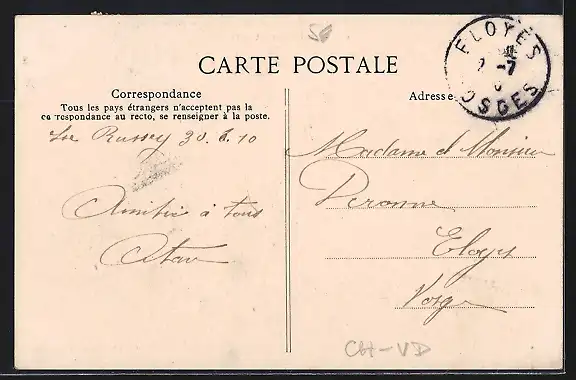 CARTE POSTALE
Correspondance
Tous les pays étrangers n'acceptent pas la
correspondance au recto, se renseigner à la poste.
Le Russey 30.6.10
Amitiés à tous
Adresse
ELOYES
2 -7
VOSGES
Madame et Monsieur
Peronne
Eloyes
Vosges
Cbt-VD